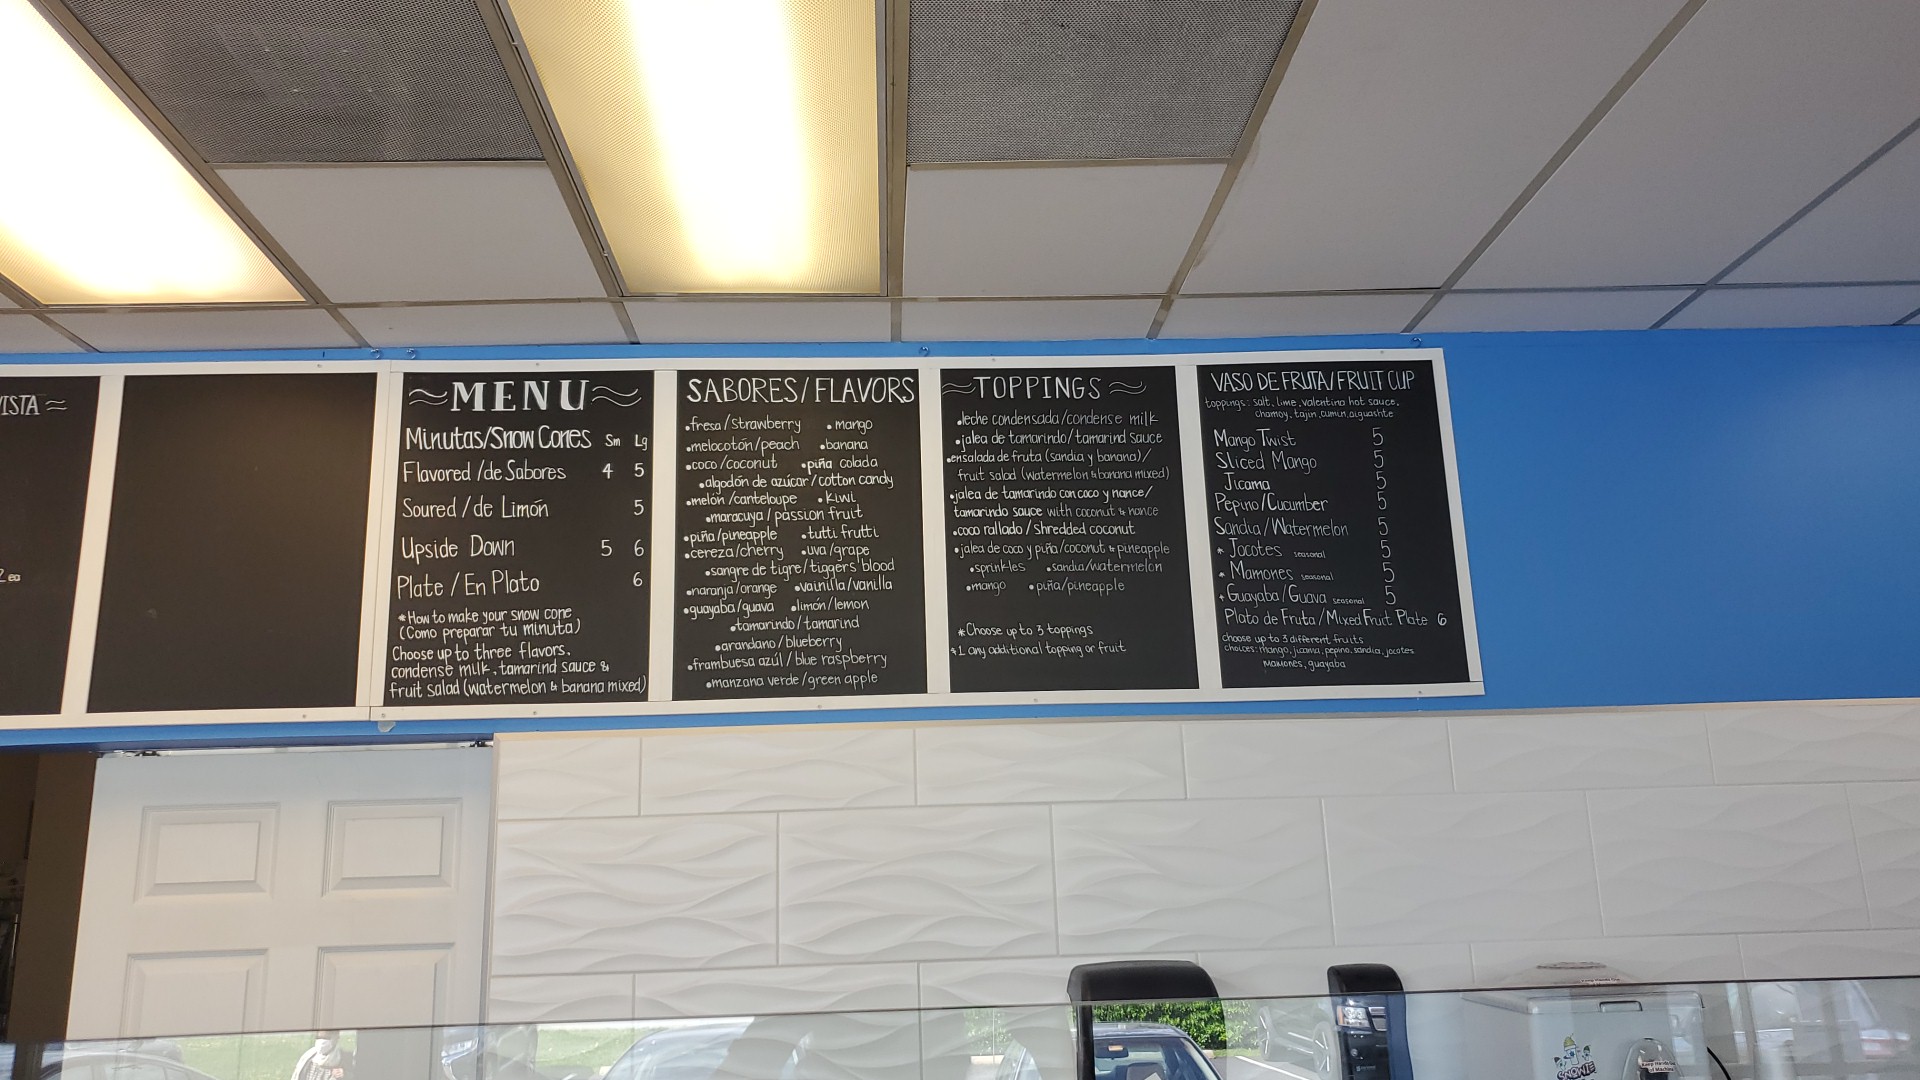 ISTA
2 ea
MENU
Minutas/Snow Cones Sm Lg
Flavored/de Sabores 4 5
Soured/de Limón 5
Upside Down 5 6
Plate/En Plato 6
*How to make your snow cone
(Como preparar tu minuta)
Choose up to three flavors.
condense milk, tamarind sauce &
fruit salad (watermelon & banana mixed)
SABORES/FLAVORS
•fresa/strawberry •mango
•melocotón/peach •banana
•coco/coconut •piña colada
•algodón de azúcar/cotton candy
•melon/canteloupe •kiwi
•maracuya/passion fruit
•piña/pineapple •tutti frutti
•cereza/cherry •uva/grape
•sangre de tigre/tiggers blood
•naranja/orange •vainilla/vanilla
•guayaba/guava •limón/lemon
•tamarindo/tamarind
•arandano/blueberry
•frambuesa azúl/blue raspberry
•manzana verde/green apple
TOPPINGS
•leche condensada/condense milk
•jalea de tamarindo/tamarind sauce
•ensalada de fruta (sandia y banana)/
fruit salad (watermelon & banana mixed)
•jalea de tamarindo con coco y nance/
tamarindo sauce with coconut & nance
•coco rallado/shredded coconut
•jalea de coco y piña/coconut & pineapple
•sprinkles •sandia/watermelon
•mango •piña/pineapple
*Choose up to 3 toppings
$1 any additional topping or fruit
VASO DE FRUTA/FRUIT CUP
toppings: salt, lime, valentina hot sauce,
chamoy, tajin, cumin, aiguashte
Mango Twist 5
Sliced Mango 5
Jicama 5
Pepino/Cucumber 5
Sandia/Watermelon 5
* Jocotes seasonal 5
* Mamones seasonal 5
* Guayaba/Guava seasonal 5
Plato de Fruta/Mixed Fruit Plate 6
choose up to 3 different fruits
choices: mango, jicama, pepino, sandia, jocotes
mamones, guayaba
SNOWIE